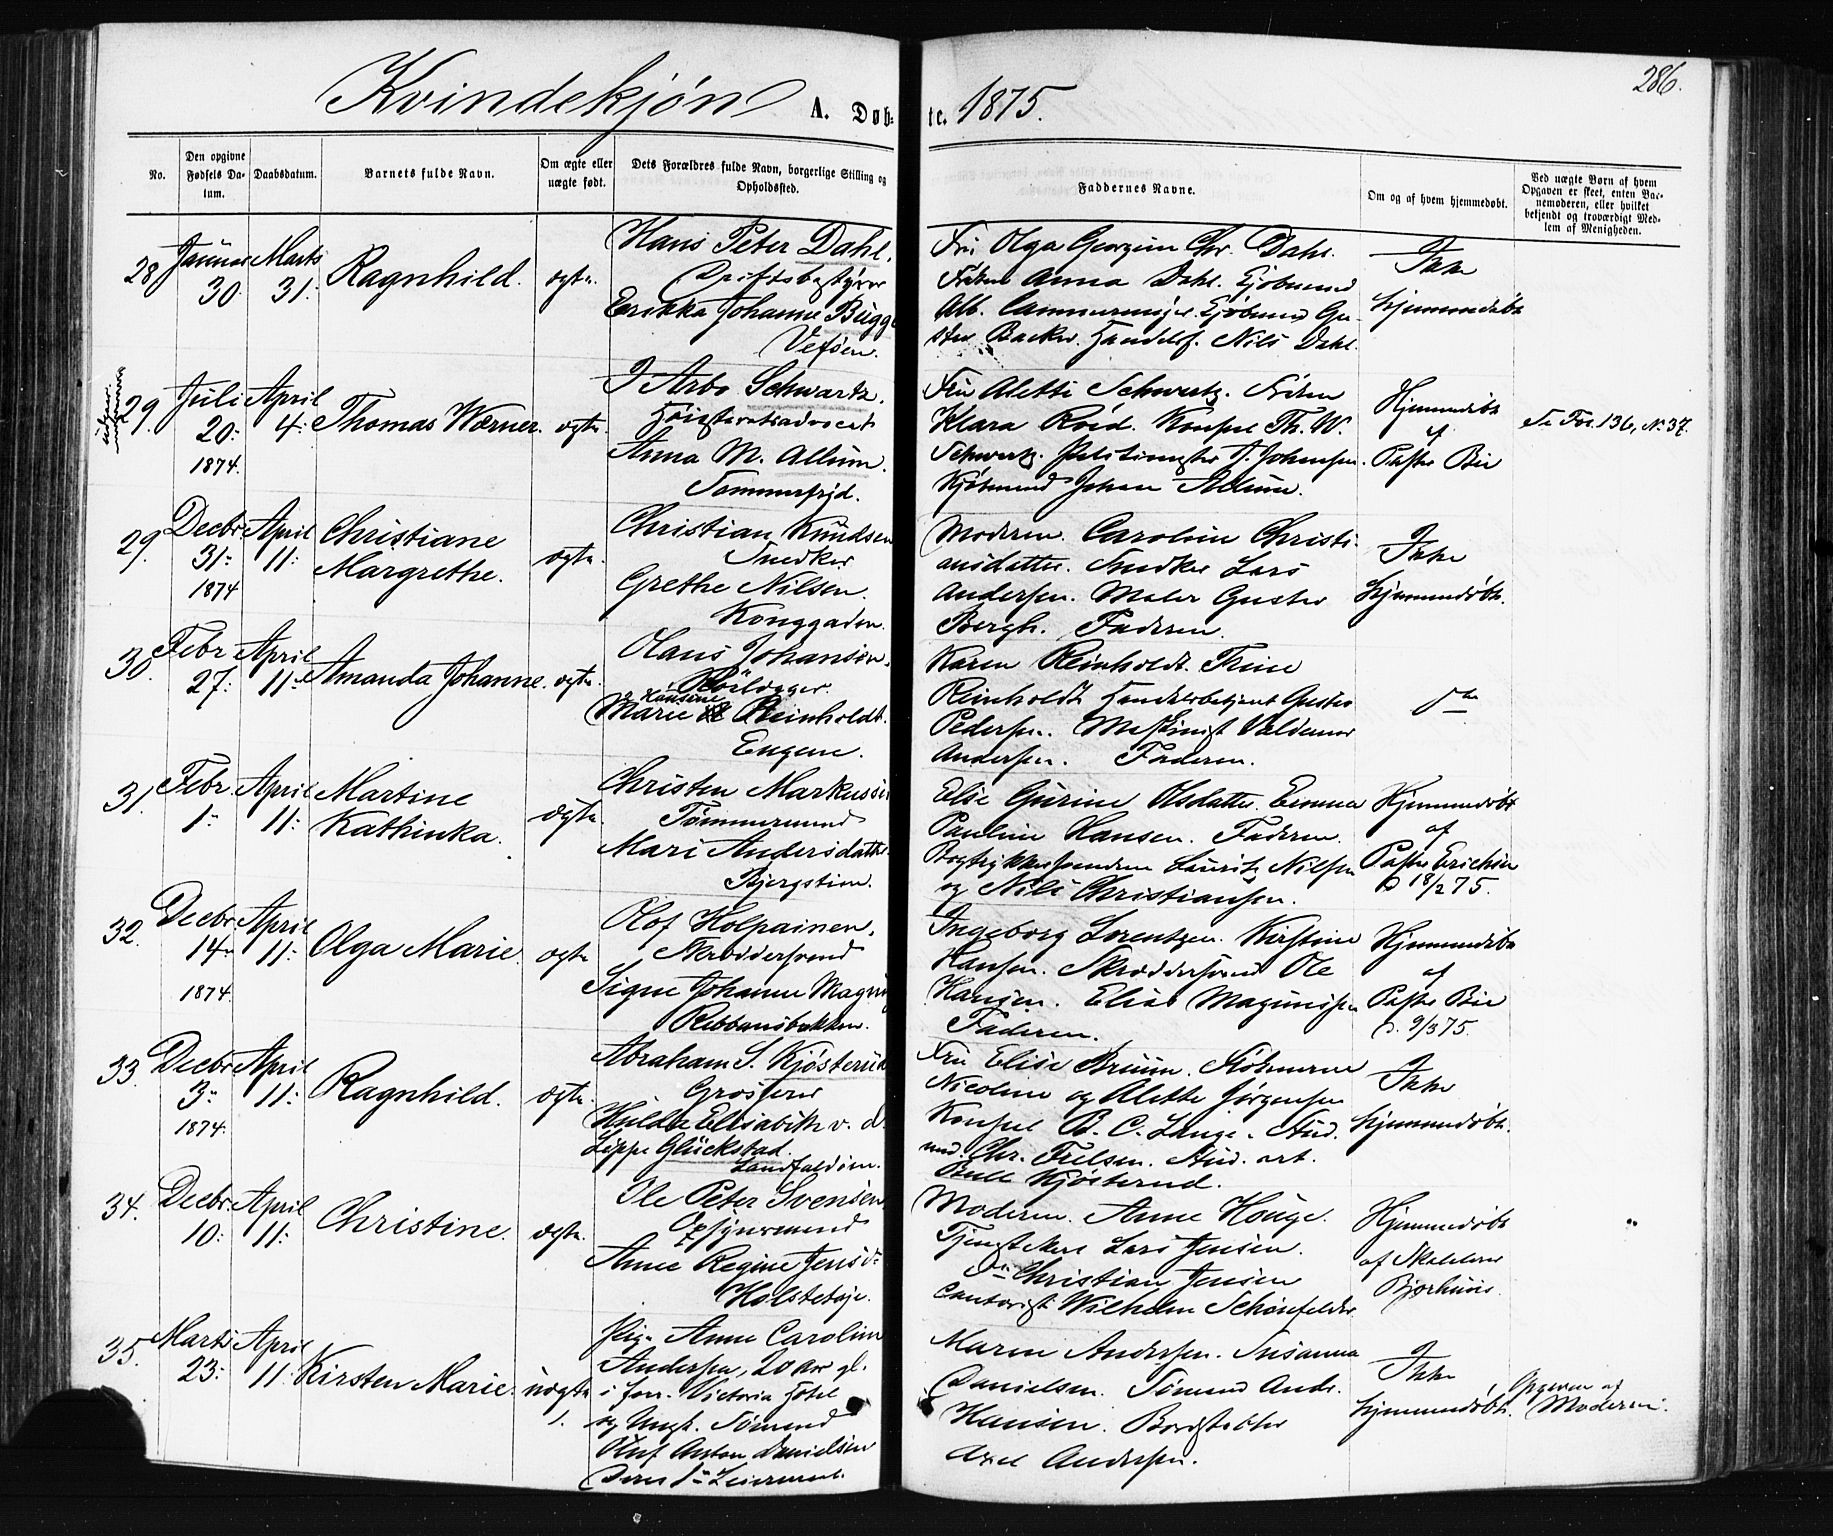 Kvindekjøn A. Døb-
te. 1875.
286.
No.
Den opgivne
Fødsels Da-
tum.
Daabsdatum.
Barnets fulde Navn.
Om ægte eller
uægte født.
Dets Forældres fulde Navn, borgerlige Stilling og
Opholdssted.
Faddernes Navne.
Om og af hvem hjemmedøbt.
Ved uægte Børn af hvem
Opgaven er skeet, enten Bar-
nemoderen, eller hvilket
bekjendt og troværdigt Med-
lem af Menigheden.
28.
Januar
30.
Marts
31.
Ragnhild.
ægte.
Hans Peter Dahl.
Driftsbestyrer
Erikka Johanne Bugge
Vefsen.
Fru Olga Georgine Chr. Dahl.
Frøken Anna Dahl. Kjøbmænd
Alb. Cammermeyer. Kjøbmand Gu-
stav Backer. Handelsf. Nils Dahl.
Ikke
hjemmedøbt
29.
Juli
20.
1874.
April
4.
Thomas Wærner.
ægte.
J Arbo Schwartz.
Høiesteretsadvocat
Anna M. Allum.
Tommerfryd.
Fru Alette Schwartz. Frøken
Klara Röed. Konsul Th. W.
Schwartz. Johnsen.
Kjøbmand Johan Allum.
Hjemmedøbt
af
Pastor Bie
Se Fol. 136, No 37.
29.
Decbr
31.
1874
April
11.
Christiane
Margrethe.
ægte.
Christian Knudsen
Snedker
Grethe Nilsen.
Konggaden.
Moderen. Caroline Christi-
ansdatter. Snedker Lars
Andersen. Maler Gustav
Bergh. Faderen.
Ikke
hjemmedøbt.
30.
Febr
27.
April
11.
Amanda Johanne.
ægte.
Hans Johansen.
Rørlægger.
Hansine
Marie Reinholdt.
Engene.
Karen Reinholdt. Trine
Reinholdt. Handelsbetjent Gustav
Pedersen. Maskinist Valdemar
Andersen. Faderen.
do
31.
Febr.
1.
April
11.
Martine
Kathinka.
ægte.
Christen Markussen
Tømmermand
Mari Andersdatter
Bjergstien.
Elise Gurine Olsdatter. Emma
Pauline Hansen. Faderen.
Bogtrykkersvendene Lauritz Nilsen
og Nils Christiansen.
Hjemmedøbt
af
Pastor Erichsen
D 18/2 75.
32.
Decbr.
14.
1874
April
11.
Olga Marie.
ægte
Olof Holpainen.
Skræddersvend
Signe Johanne Magnus
Rebbansbakken.
Ingeborg Lorentzen. Kirstine
Hansen. Skræddersvend Ole
Hansen. Elias Magnussen
Faderen.
Hjemmedøbt
af
Pastor Bie
D. 9/3 75.
33.
Decbr
3.
1874.
April
11.
Ragnhild.
ægte.
Abraham S. Kjøsterud
Grosserer
Hulda Elisabeth v. d.
Lippe Glückstad.
Landfaldøen.
Fru Elise Bruun. Frøknerne
Nicoline og Alette Jørgensen
Konsul B. C. Lange. Stud.
med. Chr. Frelsen. Stud. art.
Bull Kjøsterud.
Ikke
hjemmedøbt.
34.
Decbr.
10.
April
11.
Christine.
ægte.
Ole Peter Svensen
Opsynsmand
Anne Regine Jensd.
Holstetøje.
Moderen. Anne Houge.
Tjenestekarl Lars Jensen.
do Christian Jensen
Cantorist Wilhelm Schønfelder
Hjemmedøbt
af Skolelærer
Bjørhuus.
35.
Marts
23.
April
11.
Kirsten Marie.
uægte
1.
Pige Anne Caroline
Andersen, 20 aar gl.
i forr. Victoria Hotel
og Ungk. Sømand
Oluf Anton Danielsen
Deres 1ste Leiermaal.
Maren Andersen. Susanna
Danielsen. Sømand Andr.
Hansen. Bogstølder
Axel Andersen.
Ikke
hjemmedøbt.
Opgaven af
Moderen.